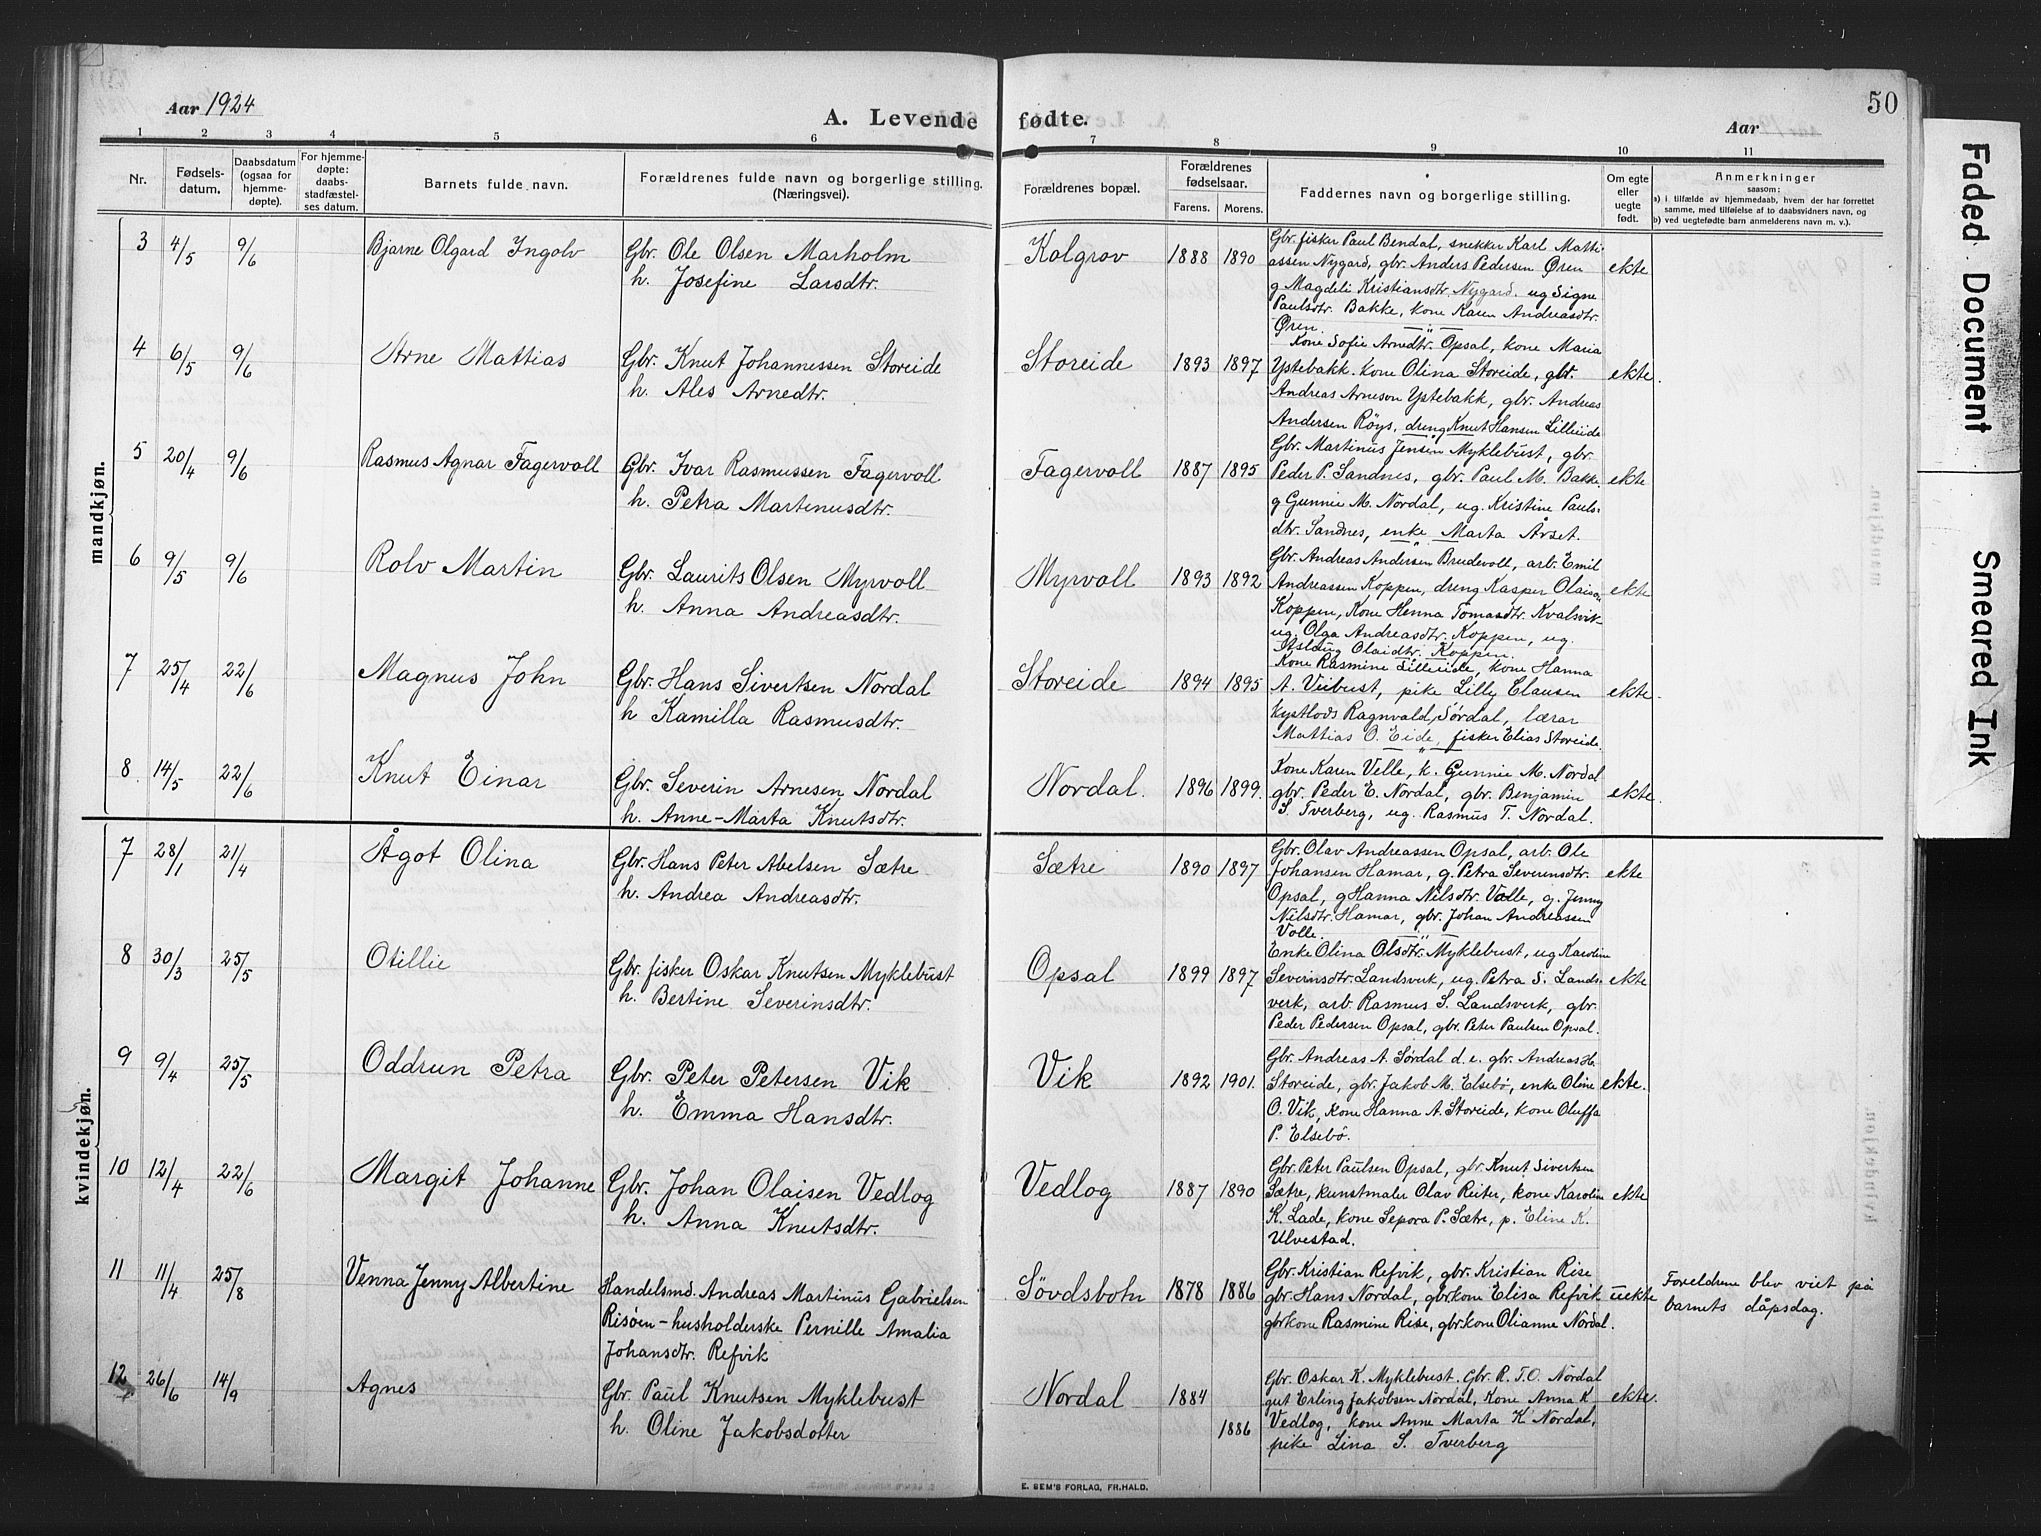 Aar 1924
A. Levende fødte.
Aar
50
1 2 3 4 5 6 7 8 9 10 11
Nr.
Fødsels-
datum.
Daabsdatum
(ogsaa for
hjemme-
døpte).
For hjemme-
døpte:
daabs-
stadfæstel-
ses datum.
Barnets fulde navn.
Forældrenes fulde navn og borgerlige stilling.
(Næringsvei).
Forældrenes bopæl.
Forældrenes
fødselsaar.
Farens. Morens.
Faddernes navn og borgerlige stilling.
Om egte
eller
uegte
født.
Anmerkninger
saasom:
a) i tilfælde av hjemmedaab, hvem der har forrettet
samme, med tilføielse af to daabsvidners navn, og
b) ved uegtefødte barn anmelderens navn m. v.).
mandkjøn.
3 4/5 9/6 Bjarne Olgard Ingolv
Gbr. Ole Olsen Marholm
h. Josefine Larsdtr.
Kolgrov 1888 1890
Gbr. fisker Paul Bendal, snekker Karl Matti-
assen Nygard, gbr. Anders Pedersen Øren
g Magdeli Kristiansdtr Nygard. ug Signe
Paulsdtr. Bakke, kone Karen Andreasdtr.
Øren.
ekte
4 6/5 9/6 Arne Mattias
Gbr. Knut Johannessen Storeide
h. Ales Arnedtr.
Storeide 1893 1897
Kone Sofie Arnedtr. Opsal, kone Maria
Ystebakk. kone Olina Storeide, gbr.
Andreas Arneson Ystebakk, gbr. Andreas
Andersen Röys, dreng Knut Hansen Lilleeide
ekte.
5 20/4 9/6 Rasmus Agnar Fagervoll
Gbr. Ivar Rasmussen Fagervoll
h. Petra Martinusdtr.
Fagervoll 1887 1895
Gbr. Martinus Jensen Myklebust, gbr.
Peder P. Sandnes, gbr. Paul M. Bakke
g Gunnie M. Nordal, ug. Kristine Pauls-
dtr. Sandnes, enke Marta Årset.
ekte
6 9/5 9/6 Rolv Martin
Gbr. Laurits Olsen Myrvoll
h. Anna Andreasdtr.
Myrvoll 1893 1892
Gbr. Andreas Andersen Brudevoll, arb. Emil
Andreassen Koppen, dreng Kasper Olaison
Koppen, Kone Henna Tomasdtr. Kvalsvik
ug. Olga Andreasdtr. Koppen, ug.
Aslaug Olaidtr. Koppen.
ekte
7 25/4 22/6 Magnus John
Gbr. Hans Sivertsen Nordal
h Kamilla Rasmusdtr.
Storeide 1894 1895
Kone Rasmine Lilleeide, kone Hanna
A. Viibust, pike Lilly Clausen
Kystlods Ragnvald Sørdal, lærar
Mattias O. Eide, fisker Elias Storeide.
ekte.
8. 14/5 22/6 Knut Einar
Gbr. Severin Arnesen Nordal
h. Anne-Marta Knutsdtr.
Nordal. 1896 1899.
Kone Karen Velle, k. Gunnie M. Nordal
gbr. Peder E. Nordal, gbr. Benjamin
S. Tverberg, ug. Rasmus T. Nordal.
ekte.
kvindekjøn.
7 28/1 21/4 Ågot Olina
Gbr. Hans Peter Abelsen Sætre
h. Andrea Andreasdtr.
Sætre 1890 1897
Gbr. Olav Andreassen Opsal, arb. Ole
Johansen Hamar, g. Petra Severinsdtr.
Opsal, g Hanna Nilsdtr. Volle, g. Jenny
Nilsdtr. Hamar, gbr. Johan Andreassen
Volle.
ekte
8 30/3 25/5 Otillie
Gbr. fisker Oskar Knutsen Myklebust
h. Bertine Severinsdtr.
Opsal 1899 1897
Enke Olina Olsdtr. Myklebust, ug Karoline
Severinsdtr. Landsverk, ug. Petra S. Lands-
verk, arb. Rasmus S. Landsverk, gbr.
Peder Pedersen Opsal, gbr. Peter Paulsen Opsal.
ekte
9 9/4 25/5 Oddrun Petra
Gbr. Peter Petersen Vik
h. Emma Hansdtr.
Vik 1892 1901.
Gbr. Andreas A. Sørdal d. e. gbr. Andreas H.
Storeide, gbr. Jakob M. Elsebö, enke Oline
O. Vik, kone Hanna A. Storeide, kone Oluffa
P. Elsebö.
ekte.
10 12/4 22/6 Margit Johanne
Gbr. Johan Olaisen Vedlog
h. Anna Knutsdtr.
Vedlog 1887 1890
Gbr. Peter Paulsen Opsal, gbr. Knut Sivertsen
Sætre, kunstmaler Olav Reiter, kone Karoline
K. Lade, kone Sepora P. Sætre, p. Eline K.
Ulvestad.
ekte
11 11/4 25/8 Venna Jenny Albertine
Handelsmd. Andreas Martinus Gabrielsen
Risöen - husholderske Pernille Amalia
Johansdtr. Refvik
Sövdsbotn 1878 1886
Gbr. Kristian Refvik, gbr. Kristian Rise
gbr Hans Nordal, gbrkone Elisa Refvik
gbrkone Rasmine Rise, gbrkone Olianne Nordal.
uekte
Foreldrene blev viet på
barnets dåpsdag.
12 26/6 14/9 Agnes
Gbr. Paul Knutsen Myklebust
h. Oline Jakobsdotter
Nordal 1884
1886
Gbr. Oskar K. Myklebust. Gbr. R. T. O. Nordal
gut Erling Jakobsen Nordal, Kone Anna K
Vedlog, kone Anne Marta K Nordal,
pike Lina S. Tverberg
ekte.
E. SEM'S FORLAG, FR.HALD.
Faded Document
Smeared Ink